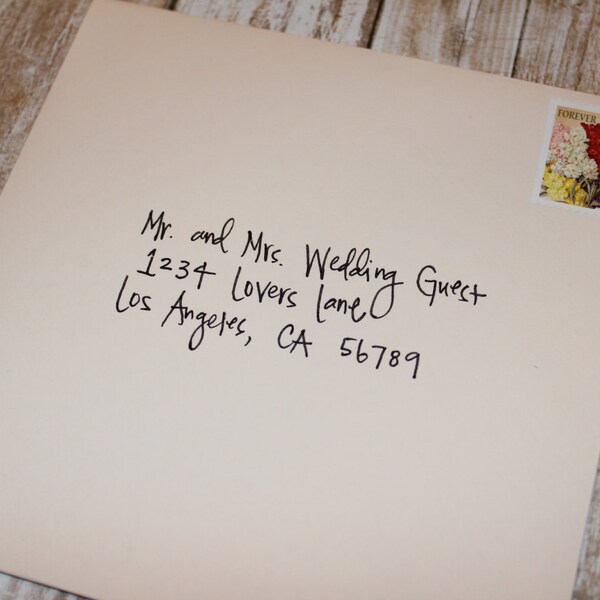 FOREVER
Mr. and Mrs. Wedding Guest
1234 Lovers Lane
Los Angeles, CA 56789